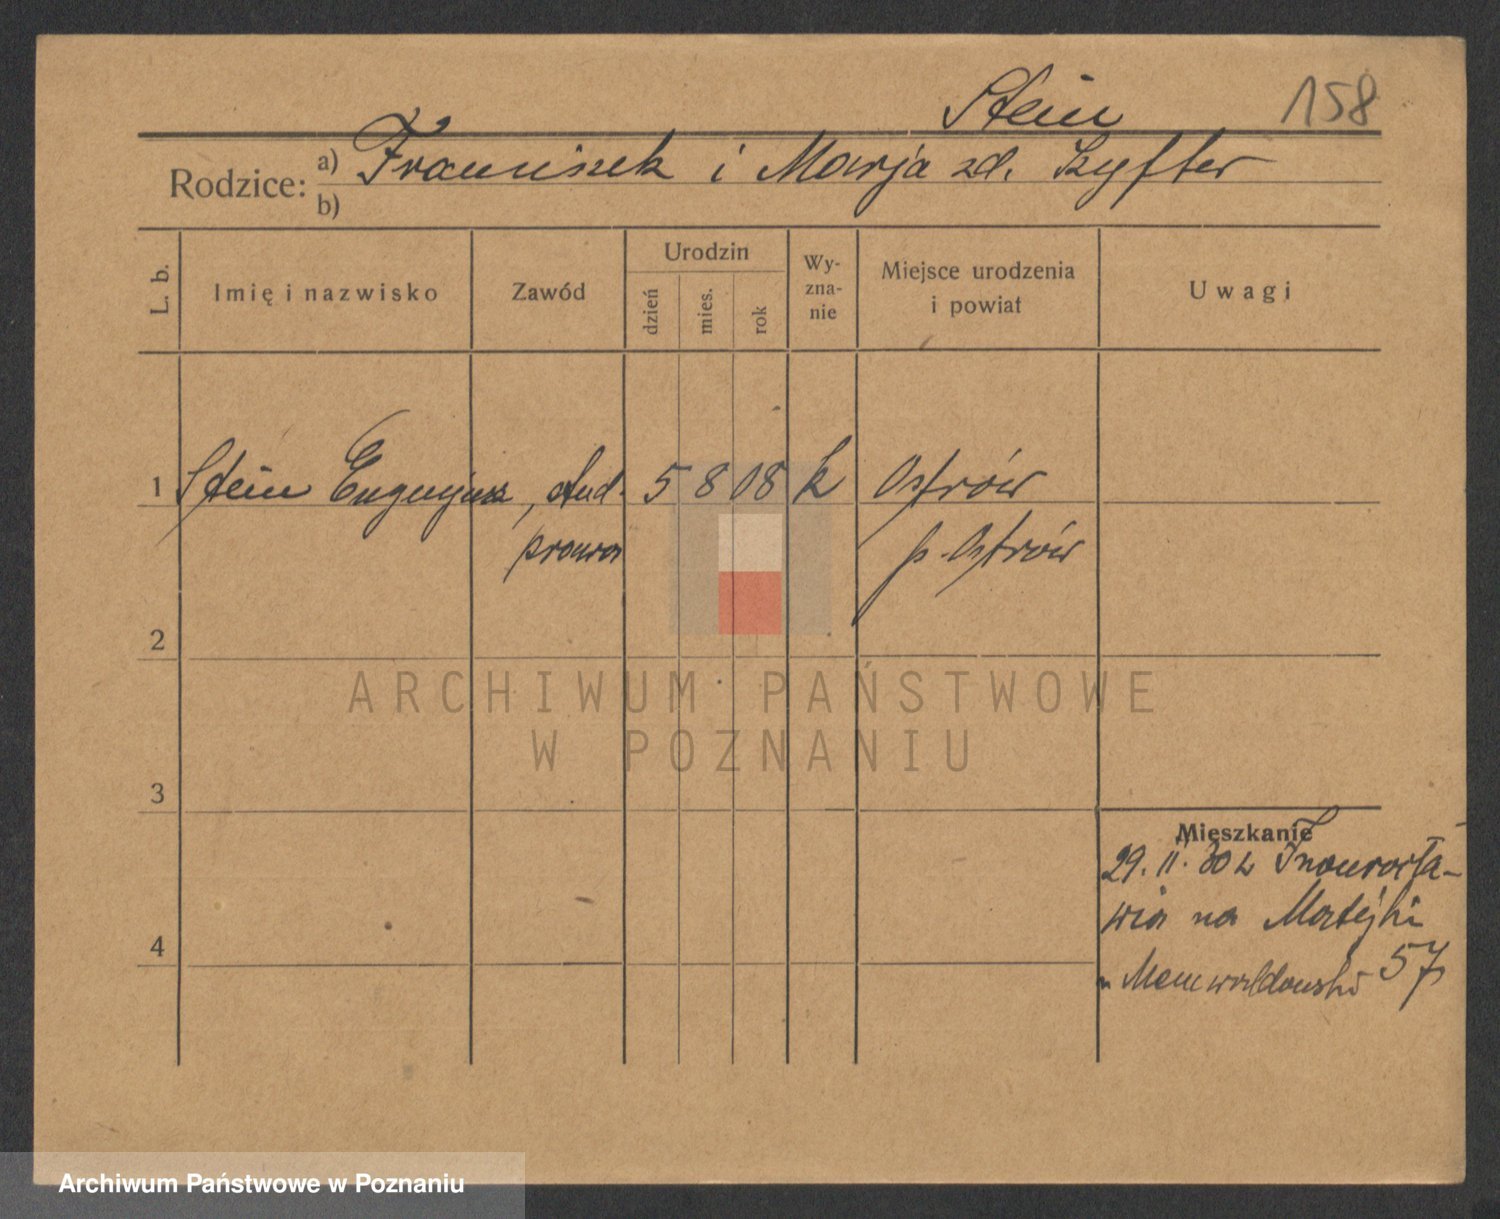 Stein 158
Rodzice: a) Franciszek i Marja zd. Szyfter
b)
L. b. Imię i nazwisko Zawód Urodzin dzień mies. rok Wy-zna-nie Miejsce urodzenia i powiat Uwagi
1 Stein Eugenjusz, stud. 5 8 08 k Ostrów
prawa p. Ostrów
2
ARCHIWUM PAŃSTWOWE
W POZNANIU
3
Mieszkanie
29. II. 30 z Inowrocła-
4 wia na Matejki
57
Archiwum Państwowe w Poznaniu